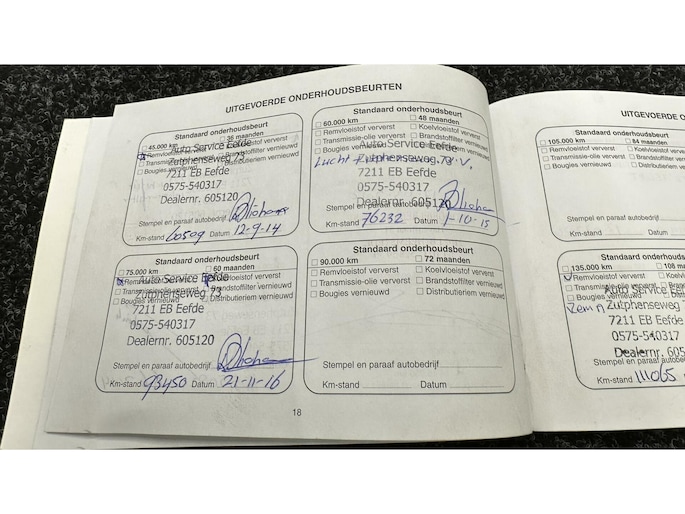 UITGEVOERDE ONDERHOUDSBEURTEN
Standaard onderhoudsbeurt
45.000 km 36 maanden
Remvloeistof ververst Koelvloeistof ververst
Transmissie-olie ververst Brandstoffilter vernieuwd
Bougies vernieuwd Distributieriem vernieuwd
Auto Service Eefde
Zutphenseweg 73
7211 EB Eefde
0575-540317
Dealernr. 605120
Stempel en paraaf autobedrijf
Km-stand 60509 Datum 12-9-14
Standaard onderhoudsbeurt
60.000 km 48 maanden
Remvloeistof ververst Koelvloeistof ververst
Transmissie-olie ververst Brandstoffilter vernieuwd
Bougies vernieuwd Distributieriem vernieuwd
Auto Service Eefde
Lucht
Zutphenseweg 73
7211 EB Eefde
0575-540317
Dealernr. 605120
Stempel en paraaf autobedrijf
Km-stand 76232 Datum 1-10-15
Standaard onderhoudsbeurt
75.000 km 60 maanden
Remvloeistof ververst Koelvloeistof ververst
Transmissie-olie ververst Brandstoffilter vernieuwd
Bougies vernieuwd Distributieriem vernieuwd
Auto Service Eefde
Zutphenseweg 73
7211 EB Eefde
0575-540317
Dealernr. 605120
Stempel en paraaf autobedrijf
Km-stand 93450 Datum 21-11-16
Standaard onderhoudsbeurt
90.000 km 72 maanden
Remvloeistof ververst Koelvloeistof ververst
Transmissie-olie ververst Brandstoffilter vernieuwd
Bougies vernieuwd Distributieriem vernieuwd
Stempel en paraaf autobedrijf
Km-stand Datum
18
UITGEVOERDE O
Standaard onderho
105.000 km 84 maanden
Remvloeistof ververst Koelvloeis
Transmissie-olie ververst Brandstoff
Bougies vernieuwd Distributie
Stempel en paraaf autobedrijf
Km-stand Datum
Standaard onderho
135.000 km 108 m
Remvloeistof ververst Koelvloei
Transmissie-olie ververst Brands
Bougies vernieuwd
Auto Service Ee
Zutphenseweg
7211 EB Eefde
0575-540317
Dealernr. 605
Stempel en paraaf autobe
Km-stand 111065